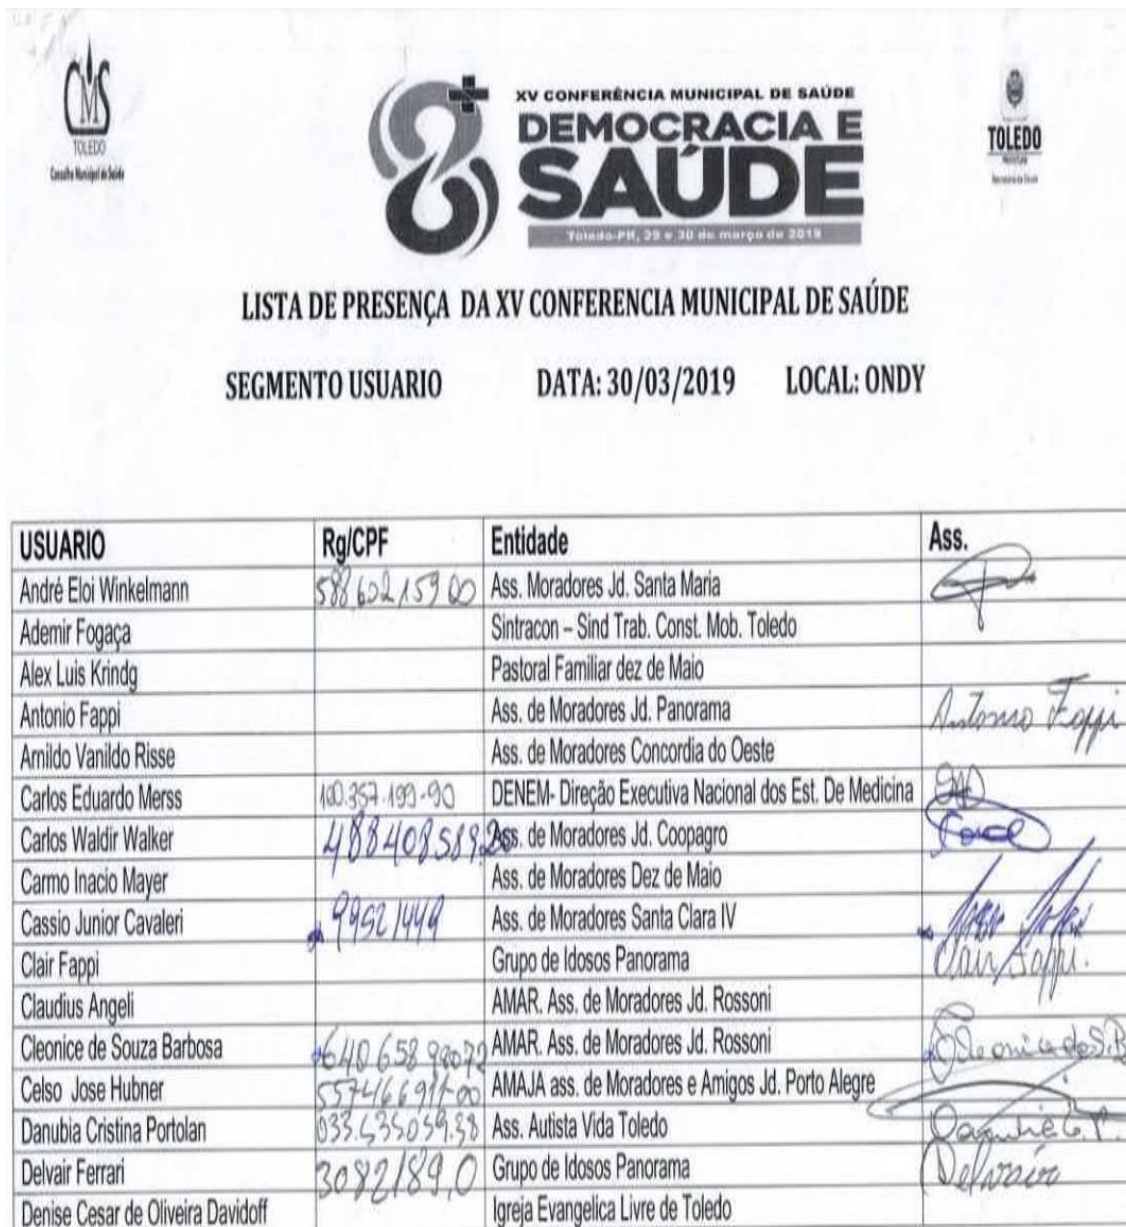 CMS
TOLEDO
Conselho Municipal de Saúde
XV CONFERÊNCIA MUNICIPAL DE SAÚDE
DEMOCRACIA E
SAÚDE
Toledo-PR, 29 e 30 de março de 2019
TOLEDO
LISTA DE PRESENÇA DA XV CONFERENCIA MUNICIPAL DE SAÚDE
SEGMENTO USUARIO DATA: 30/03/2019 LOCAL: ONDY
USUARIO Rg/CPF Entidade Ass.
André Eloi Winkelmann 588.602.159 00 Ass. Moradores Jd. Santa Maria
Ademir Fogaça Sintracon – Sind Trab. Const. Mob. Toledo
Alex Luis Krindg Pastoral Familiar dez de Maio
Antonio Fappi Ass. de Moradores Jd. Panorama Antonio Fappi
Arnildo Vanildo Risse Ass. de Moradores Concordia do Oeste
Carlos Eduardo Merss 100.357.199-90 DENEM- Direção Executiva Nacional dos Est. De Medicina
Carlos Waldir Walker 488408589.20 Ass. de Moradores Jd. Coopagro
Carmo Inacio Mayer Ass. de Moradores Dez de Maio
Cassio Junior Cavaleri 99521449 Ass. de Moradores Santa Clara IV
Clair Fappi Grupo de Idosos Panorama Clair Fappi.
Claudius Angeli AMAR. Ass. de Moradores Jd. Rossoni
Cleonice de Souza Barbosa 640658 98072 AMAR. Ass. de Moradores Jd. Rossoni Cleonice de S.B
Celso Jose Hubner AMAJA ass. de Moradores e Amigos Jd. Porto Alegre
Danubia Cristina Portolan 033.535059.38 Ass. Autista Vida Toledo
Delvair Ferrari 3082189.0 Grupo de Idosos Panorama Delvair
Denise Cesar de Oliveira Davidoff Igreja Evangelica Livre de Toledo